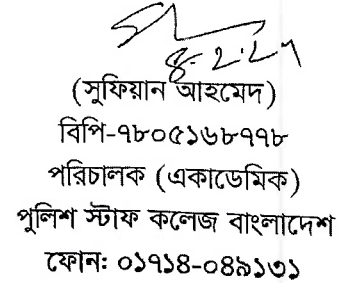 ৪.২.২১
(সুফিয়ান আহমেদ)
বিপি-৭৮০৫১৬৮৭৭৮
পরিচালক (একাডেমিক)
পুলিশ স্টাফ কলেজ বাংলাদেশ
ফোনঃ ০১৭১৪-০৪৯১৩১